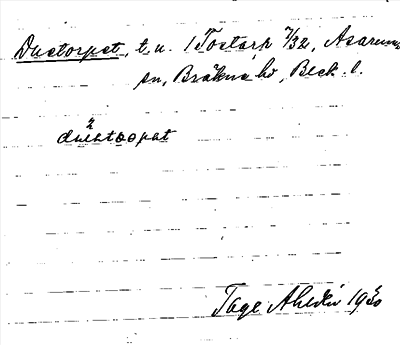 Dustorpet, t. u. 1 Tostarp 7/32, Asarums
sn, Bräkne hd, Blek. l.
dustorpat
Tage Ahldén 1930